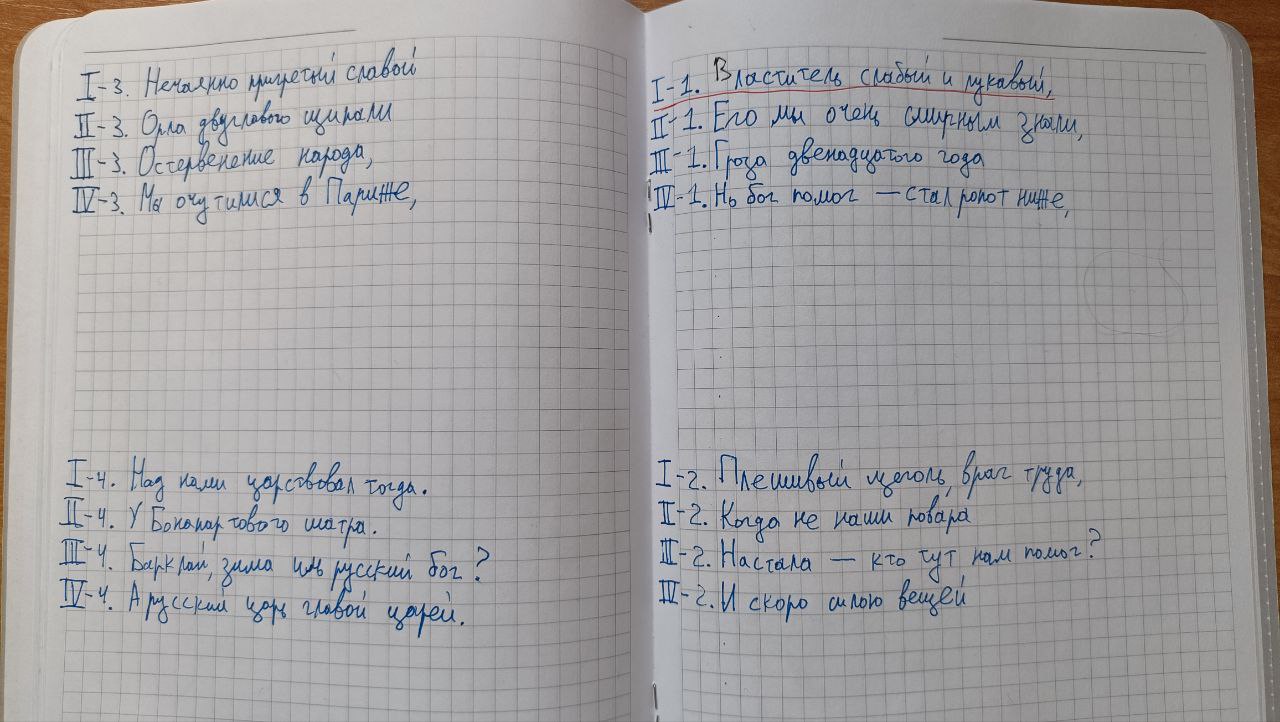 I-3. Нечаянно пригретый славой
II-3. Орла двуглавого щипали
III-3. Остервенение народа,
IV-3. Мы очутилися в Париже,
I-4. Над нами царствовал тогда.
II-4. У Бонапартового шатра.
III-4. Барклай, зима иль русский бог?
IV-4. А русский царь главой царей.
I-1. Властитель слабый и лукавый,
II-1. Его мы очень смирным знали,
III-1. Гроза двенадцатого года
IV-1. Но бог помог — стал ропот ниже,
I-2. Плешивый щеголь, враг труда,
II-2. Когда не наши повара
III-2. Настала — кто тут нам помог?
IV-2. И скоро силою вещей